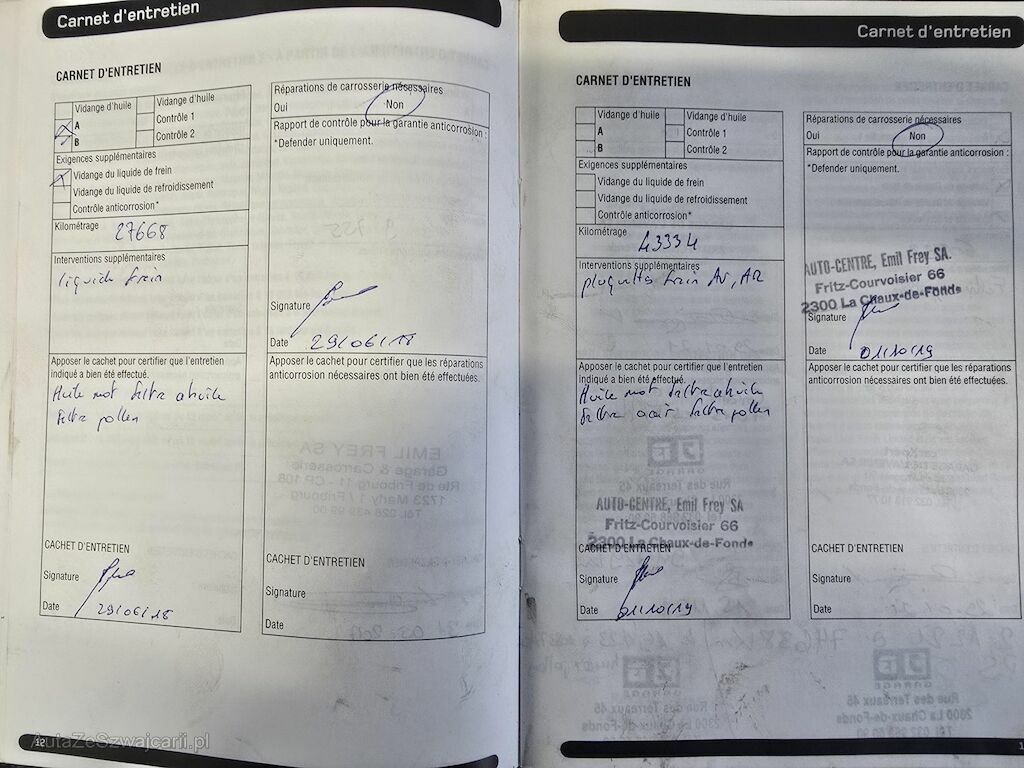 Carnet d'entretien
CARNET D'ENTRETIEN
Vidange d'huile
A
B
Vidange d'huile
Contrôle 1
Contrôle 2
Exigences supplémentaires
Vidange du liquide de frein
Vidange du liquide de refroidissement
Contrôle anticorrosion*
Kilométrage
27668
Interventions supplémentaires
liquide frein
Apposer le cachet pour certifier que l'entretien
indiqué a bien été effectué.
Huile mot filtre a huile
filtre pollen
CACHET D'ENTRETIEN
Signature
Date 29/06/18
Réparations de carrosserie nécessaires
Oui Non
Rapport de contrôle pour la garantie anticorrosion :
*Defender uniquement.
Signature
Date 29/06/18
Apposer le cachet pour certifier que les réparations
anticorrosion nécessaires ont bien été effectuées.
EMIL FREY SA
Garage & Carrosserie
Rte de Fribourg 11 - CP 108
1723 Marly 1 / Fribourg
CACHET D'ENTRETIEN
Signature
Date
12
AutaZeSzwajcarii.pl
Carnet d'entretien
CARNET D'ENTRETIEN
Vidange d'huile
A
B
Vidange d'huile
Contrôle 1
Contrôle 2
Exigences supplémentaires
Vidange du liquide de frein
Vidange du liquide de refroidissement
Contrôle anticorrosion*
Kilométrage
43334
Interventions supplémentaires
plaquettes frein AV, AR
Apposer le cachet pour certifier que l'entretien
indiqué a bien été effectué.
Huile mot filtre a huile
filtre air filtre pollen
AUTO-CENTRE, Emil Frey SA
Fritz-Courvoisier 66
2300 La Chaux-de-Fonds
CACHET D'ENTRETIEN
Signature
Date 01/10/19
Réparations de carrosserie nécessaires
Oui Non
Rapport de contrôle pour la garantie anticorrosion :
*Defender uniquement.
AUTO-CENTRE, Emil Frey SA.
Fritz-Courvoisier 66
2300 La Chaux-de-Fonds
Signature
Date 01/10/19
Apposer le cachet pour certifier que les réparations
anticorrosion nécessaires ont bien été effectuées.
CACHET D'ENTRETIEN
Signature
Date